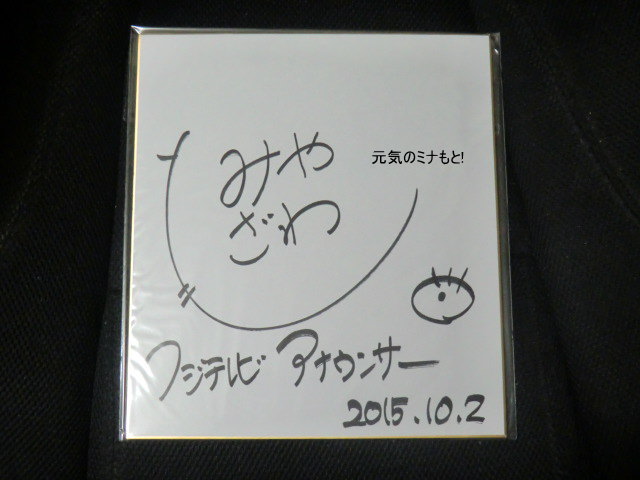 みや
ざわ
元気のミナもと!
フジテレビ アナウンサー
2015.10.2